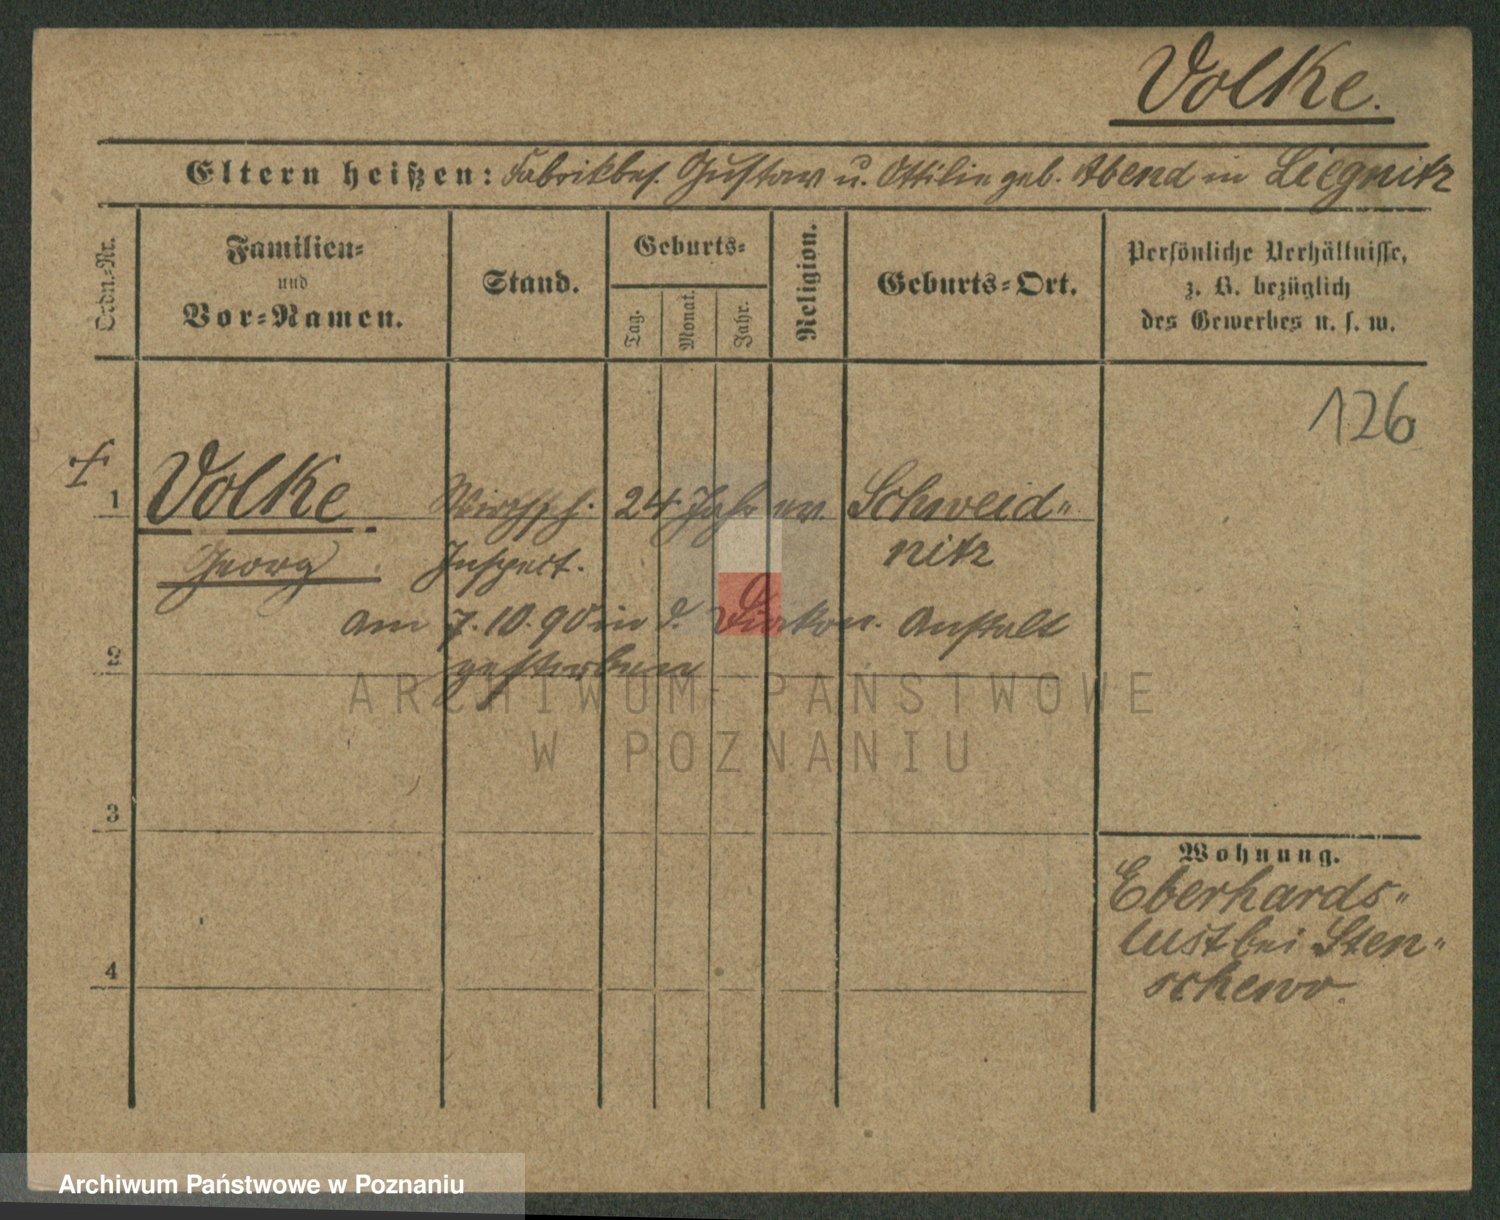 Volke.
Eltern heißen: Fabrikbes. Gustav u. Ottilie geb. Abend in Liegnitz
Ordn.-Nr.
Familien-
und
Vor-Namen.
Stand.
Geburts-
Tag.
Monat.
Jahr.
Religion.
Geburts-Ort.
Persönliche Verhältnisse,
z. B. bezüglich
des Gewerbes u. s. w.
126
† 1 Volke Wirthsch. 24 Jahr ev. Schweid-
Georg Inspect. nitz
am 7.10.90 in d. Diakon. Anstalt
2 gestorben
3
4
Wohnung.
Eberhards-
lust bei Sten-
schewo.
ARCHIWUM PAŃSTWOWE
W POZNANIU
Archiwum Państwowe w Poznaniu